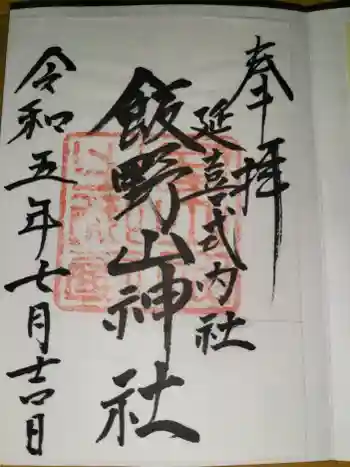 奉拝
延喜式内社
飯野山神社
令和五年七月吉日